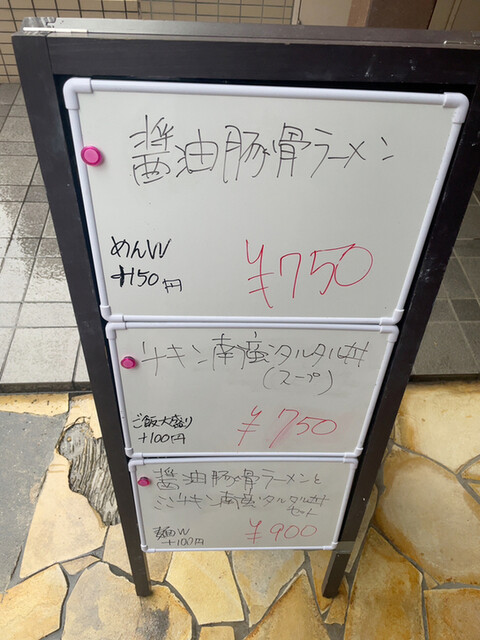 醤油豚骨ラーメン
めんW
+150円
¥750
チキン南蛮タルタル丼
(スープ)
ご飯大盛り
+100円
¥750
醤油豚骨ラーメンと
ミニチキン南蛮タルタル丼
セット
麺W
+100円
¥900